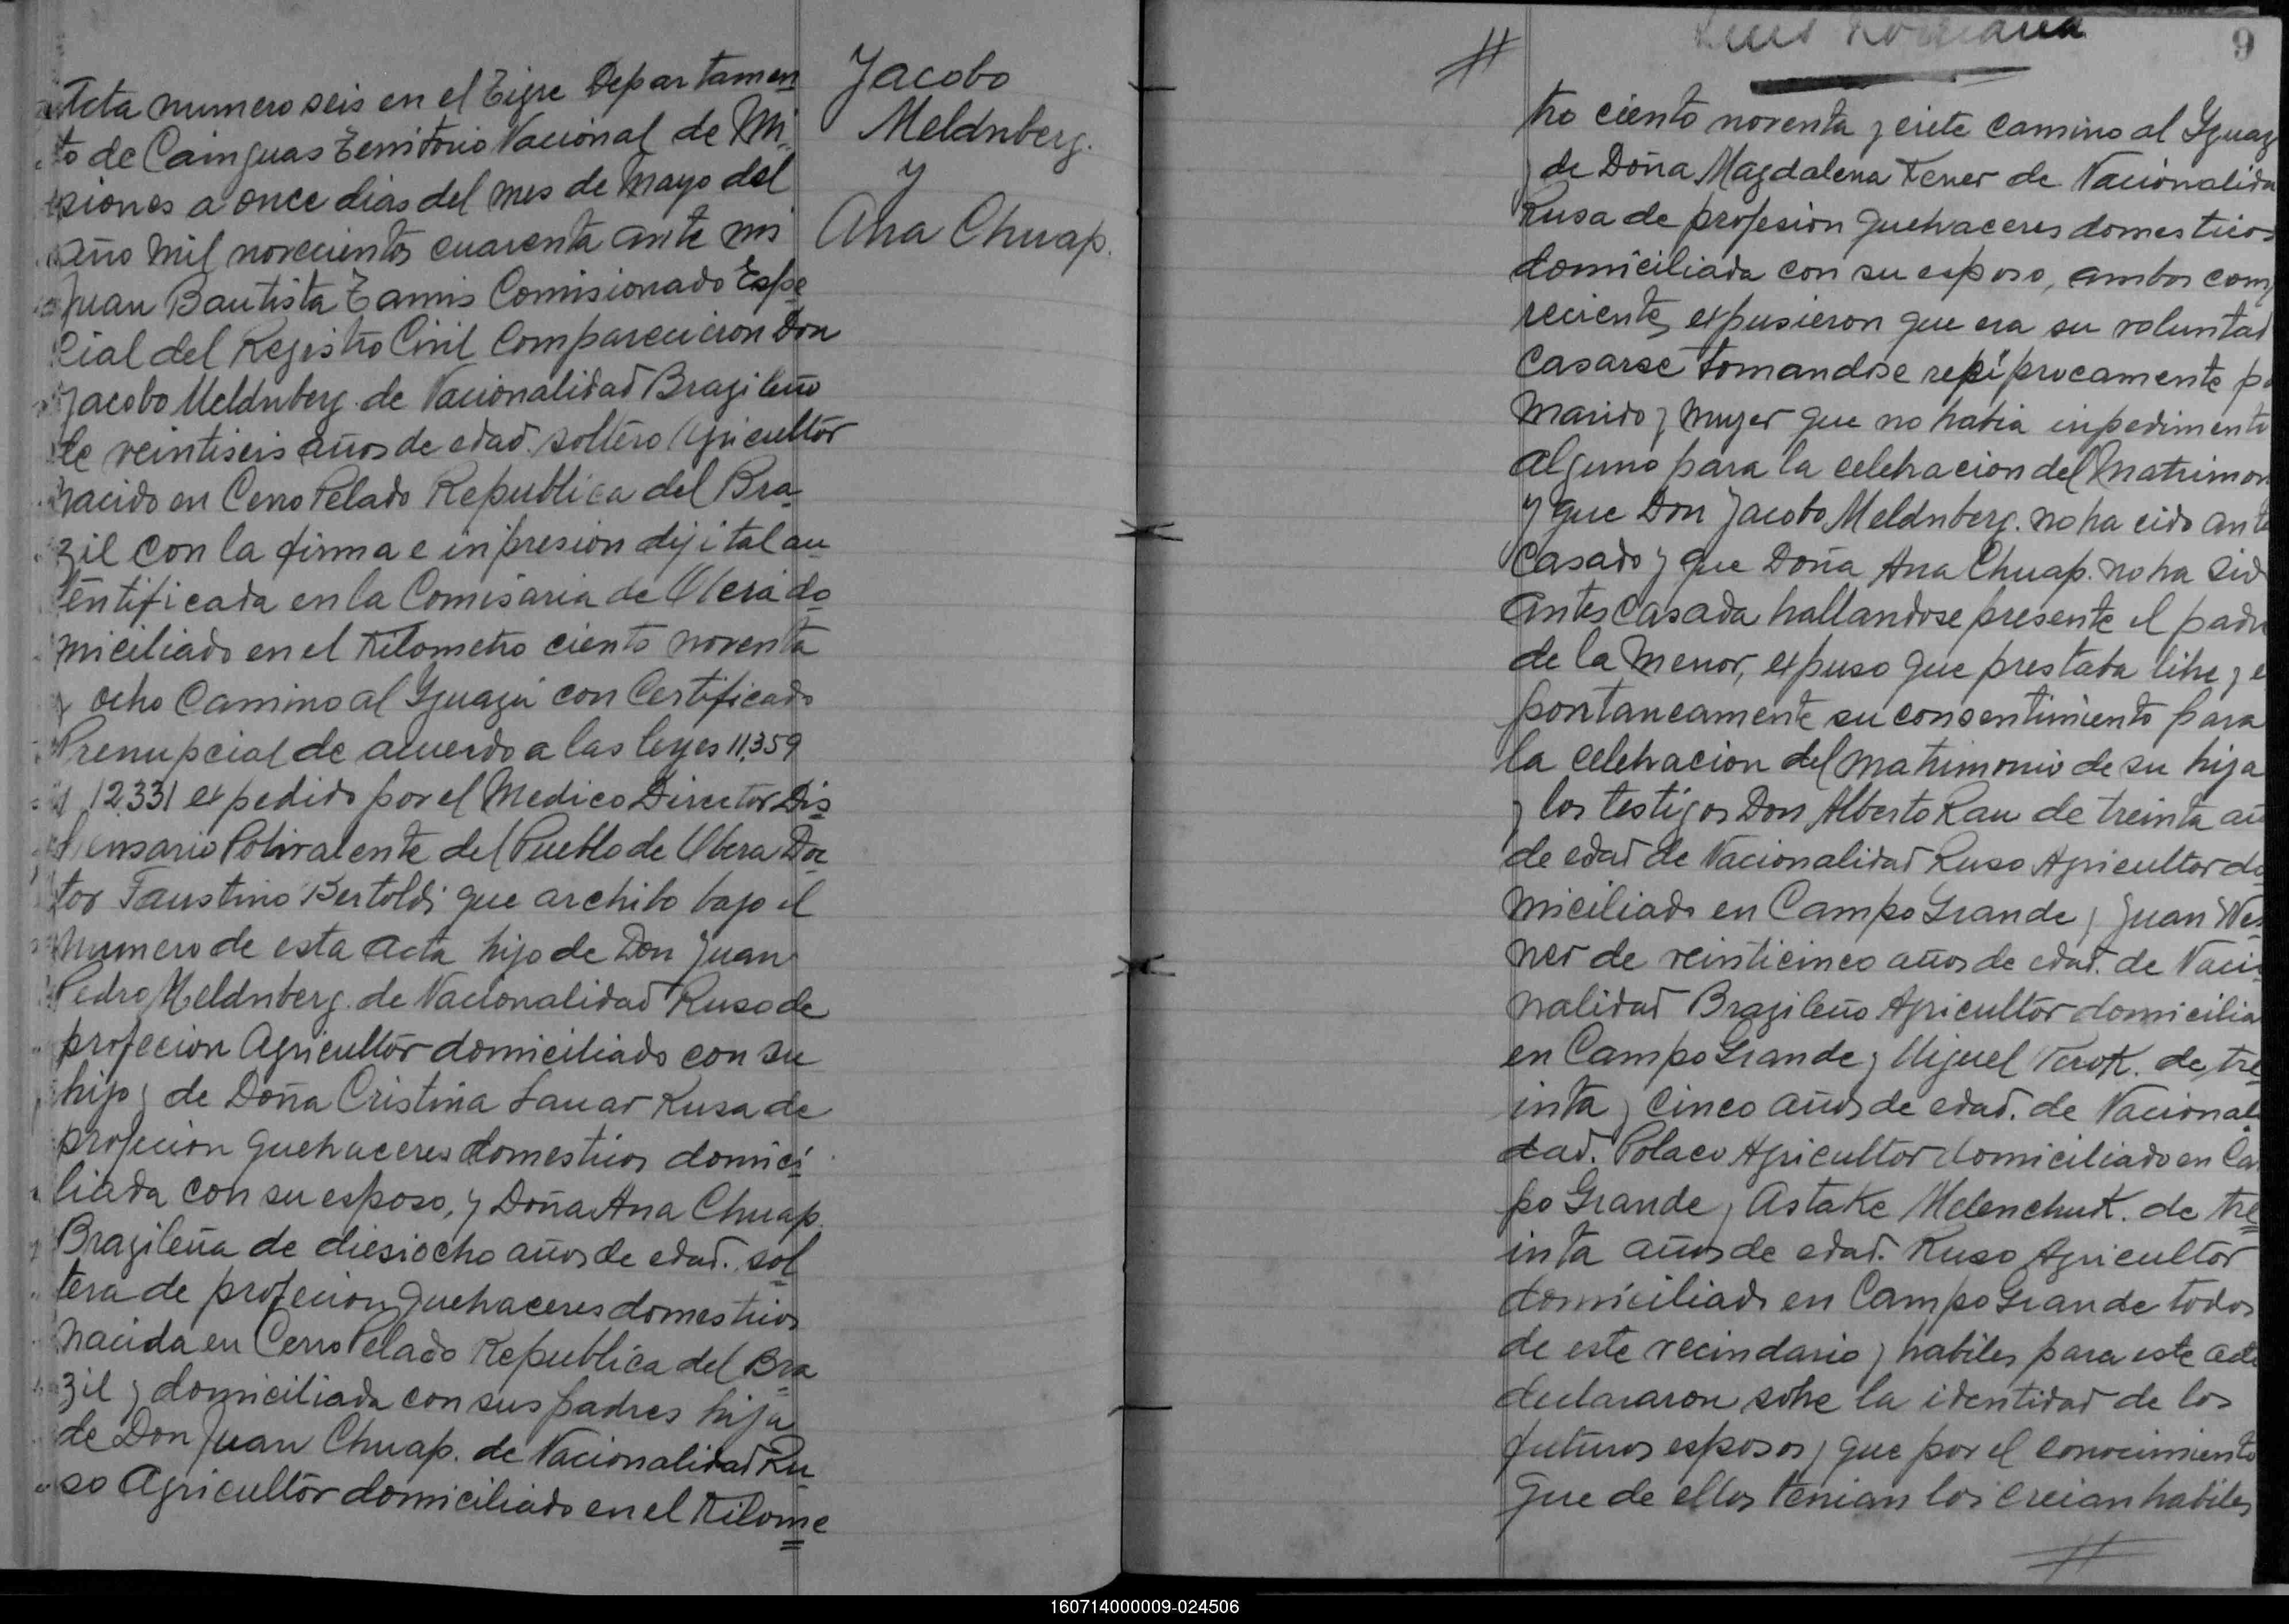 Acta numero seis en el Tigre Departamen
to de Cainguas Territorio Nacional de Mi
siones a once dias del mes de Mayo del
Año Mil novecientos cuarenta ante mi
Juan Bautista Tamis Comisionado Espe
cial del Registro Civil Comparecieron Don
Jacobo Meldnberg. de Nacionalidad Brazileño
de veintiseis años de edad. soltero Agricultor
nacido en Cerro Pelado Republica del Bra
zil con la firma e inpresion dijital au
tentificada en la Comisaria de Obera do
miciliado en el Kilometro ciento noventa
y ocho Camino al Yguazú con Certificado
Prenupcial de acuerdo a las leyes 11,359
y 12.331 expedido por el Medico Director Dis
pensario Polivalente del Pueblo de Obera Doc
tor Faustino Bertoldi que archibo bajo el
numero de esta acta hijo de Don Juan
Pedro Meldnberg. de Nacionalidad Ruso de
profecion Agricultor domiciliado con su
hijo y de Doña Cristina Lauar Rusa de
profecion quehaceres domesticos domici
liada con su esposo, y Doña Ana Chuap.
Brazileña de diesiocho años de edad. sol
tera de profecion quehaceres domesticos
nacida en Cerro Pelado Republica del Bra
zil y domiciliada con sus padres hija
de Don Juan Chuap. de Nacionalidad Ru
so Agricultor domiciliado en el Kilome
Jacobo
Meldnberg.
y
Ana Chuap.
9
tro ciento noventa y ciete camino al Yguaz
y de Doña Magdalena Kener de Nacionalida
Rusa de profesion quehaceres domesticos
domiciliada con su esposo, ambos com
recientes expusieron que era su voluntad
Casarse tomandose repiprocamente po
Marido y Muger que no habia inpedimento
Alguno para la celebracion del Matrimon
y que Don Jacobo Meldnberg. no ha cido ante
Casado y que Doña Ana Chuap. no ha sid
antes Casada hallandose presente el padre
de la Menor, expuso que prestaba libre y e
pontaneamente su consentimiento para
la celebracion del matrimonio de su hija
y los testigos Don Alberto Rau de treinta añ
de edad de Nacionalidad Ruso Agricultor do
miciliado en Campo Grande y Juan Wes
ner de veinticinco años de edad. de Nacio
nalidad Brazileño Agricultor domicilia
en Campo Grande y Miguel de tre
inta y cinco años de edad. de Nacionali
dad. Polaco Agricultor domiciliado en Ca
po Grande y Astake Melenchuk. de tre
inta años de edad. Ruso Agricultor
domiciliado en Campo Grande todos
de este vecindario y habiles para este acto
declararon sobre la identidad de los
futuros esposos y que por el conocimiento
que de ellos tenian los creian habiles
160714000009-024506